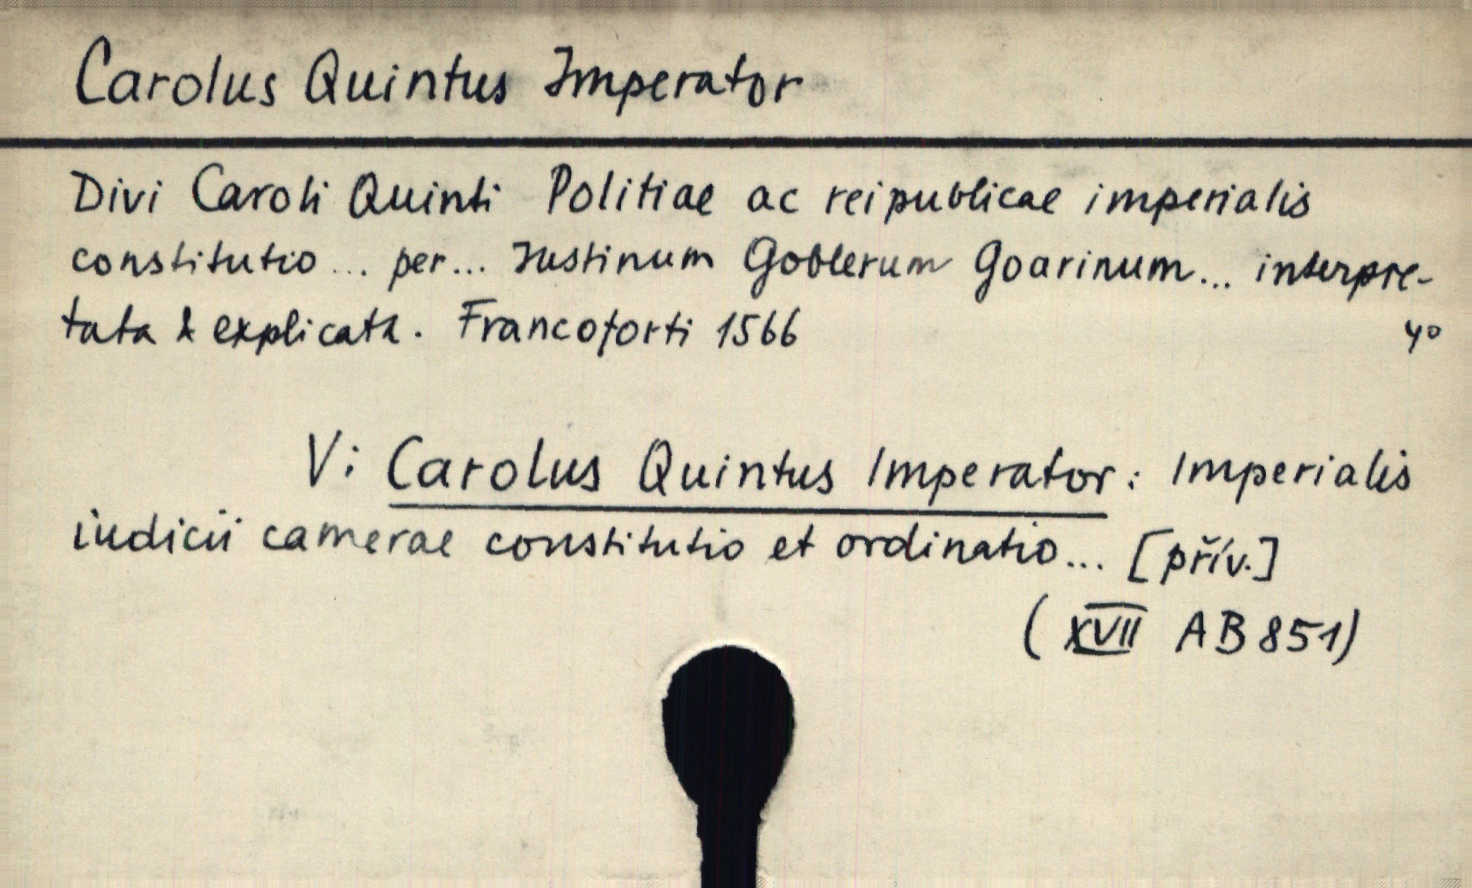 Carolus Quintus Imperator
Divi Caroli Quinti Politiae ac reipublicae imperialis
constitutio... per... Iustinum Goblerum Goarinum... interpre-
tata & explicata. Francoforti 1566 4°
V: Carolus Quintus Imperator: Imperialis
iudicii camerae constitutio et ordinatio... [přív.]
(XVII AB 851)